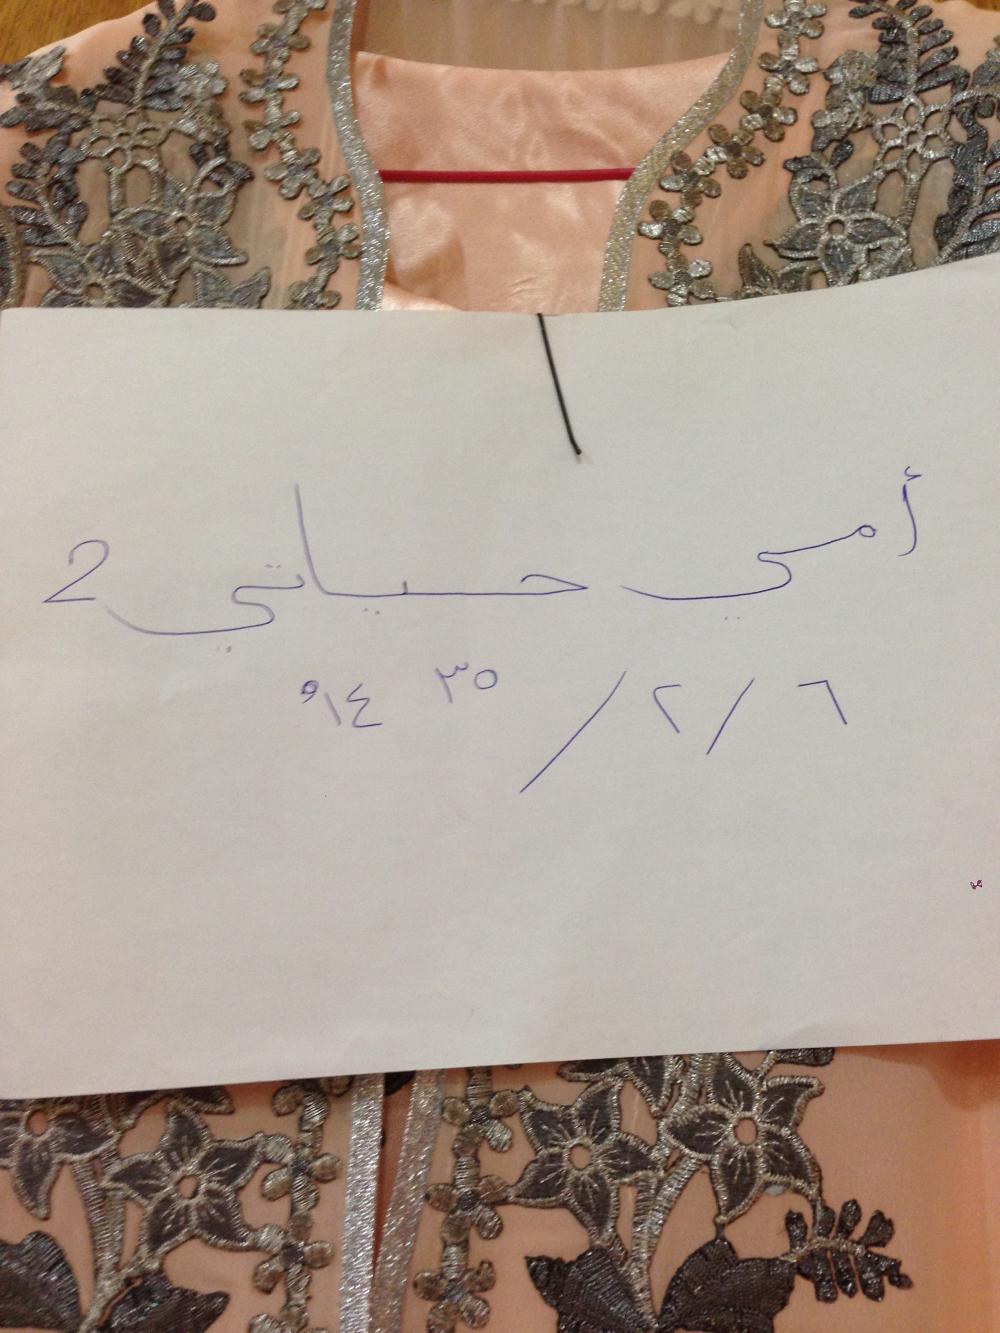 أمي حياتي 2
٦ / ٢ / ٣٥ ١٤